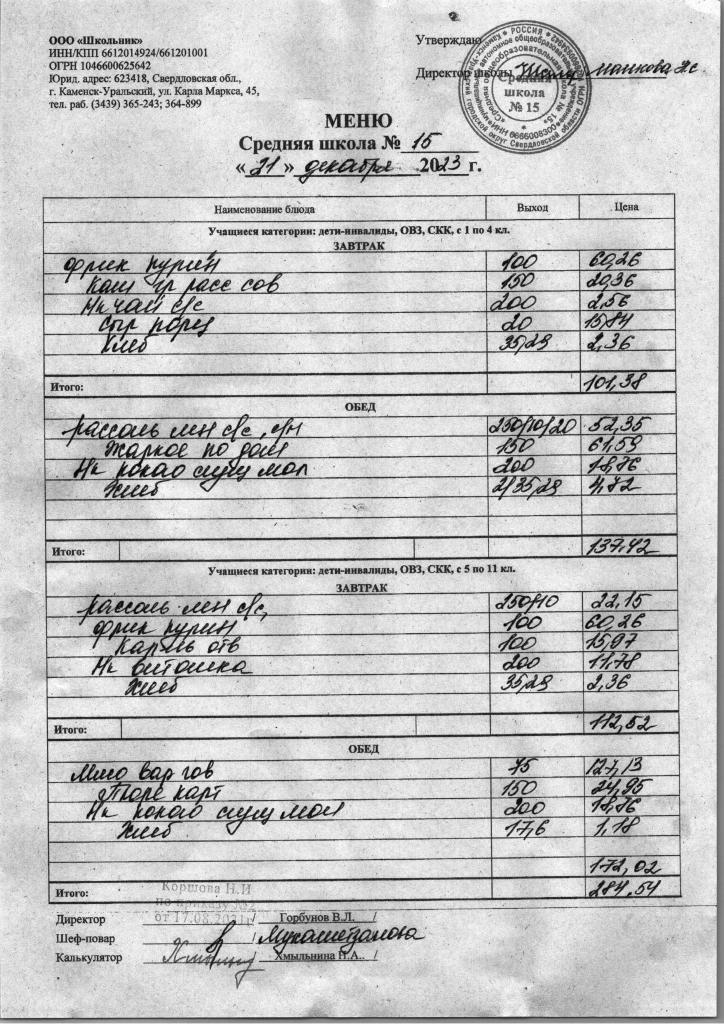 ООО «Школьник»
ИНН/КПП 6612014924/661201001
ОГРН 1046600625642
Юрид. адрес: 623418, Свердловская обл.,
г. Каменск-Уральский, ул. Карла Маркса, 45,
тел. раб. (3439) 365-243; 364-899
Утверждаю
Директор школы
Средняя школа № 15
МЕНЮ
Средняя школа № 15
« 21 » декабря 2023 г.
Наименование блюда Выход Цена
Учащиеся категории: дети-инвалиды, ОВЗ, СКК, с 1 по 4 кл.
ЗАВТРАК
Фрик курин 100 60,26
Каш гр расс сов 150 20,36
Нк чай с/с 200 2,56
Сыр порц 20 15,84
Хлеб 35/29 2,36
Итого: 101,38
ОБЕД
Рассоль лен с/с, с/м 250/10/20 52,35
Жаркое по дом 150 61,59
Нк какао сгущ мол 200 18,76
Хлеб 2/35/29 4,72
Итого: 137,42
Учащиеся категории: дети-инвалиды, ОВЗ, СКК, с 5 по 11 кл.
ЗАВТРАК
Рассоль лен с/с, 250/10 22,15
Фрик курин 100 60,26
Карт отв 100 15,97
Нк витошка 200 11,78
Хлеб 35/29 2,36
Итого: 112,52
ОБЕД
Мясо вар гов 75 127,13
Пюре карт 150 24,95
Нк какао сгущ мол 200 18,76
Хлеб 17,6 1,18
172,02
Итого: 284,54
Коршова Н.И
по приказу №2
от 17.08.2021г
Директор / Горбунов В.Л. /
Шеф-повар /
Калькулятор / Хмыльнина Н.А.. /